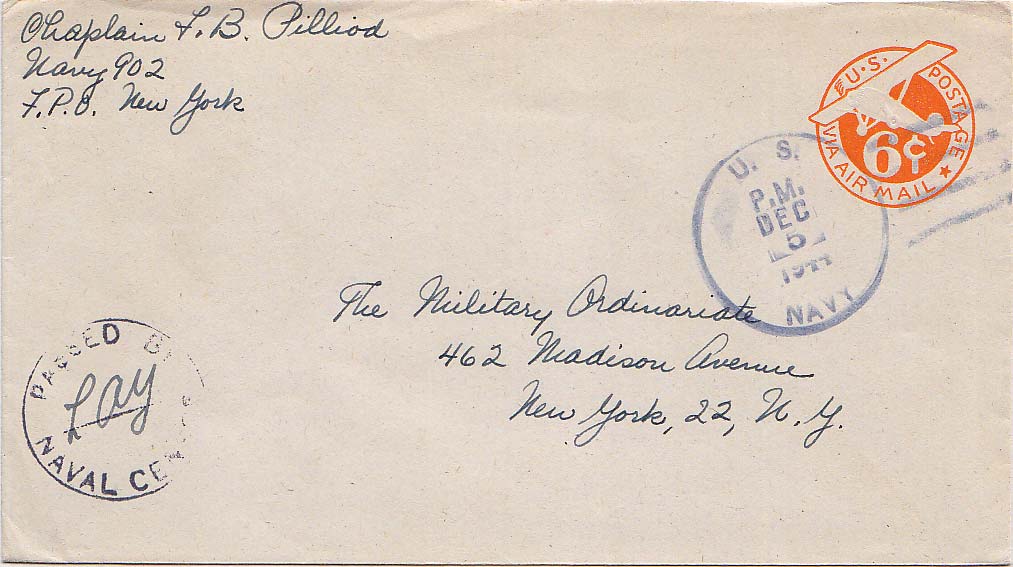 Chaplain F. B. Pilliod
Navy 902
F.P.O. New York
U.S. POSTAGE
6¢
VIA AIR MAIL
U. S.
P.M.
DEC
5
1944
NAVY
The Military Ordinariate
462 Madison Avenue
New York, 22, N. Y.
PASSED BY
NAVAL